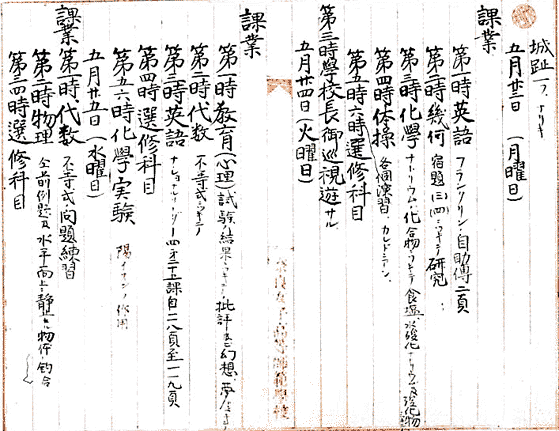 城趾
五月廿三日 (月曜日)
課業
第一時英語 フランクリン自助傳二頁
第二時幾何 宿題(三)(四)ニツキテ研究
第三時化學 ナトリウム化合物ニツキテ食塩、水酸化ナトリウム及
第四時体操 各個演習、カレドニヤン、
第五時六時選修科目
第三時學校長御巡視遊サル
五月廿四日(火曜日)
課業
第一時教育(心理)試験結果ニツキテ批評 幻想、夢
第二時代数 不等式ニツキテ
第三時英語 課自二八頁至一一九頁
第四時選修科目
第五六時化學実験 陽イオンノ
五月廿五日(水曜日)
課業
第一時代数 不等式問題練習
第二時物理 仝前例題及水平面上ニ静止 物体 釣合
第三四時選修科目
奈良女子高等師範學校